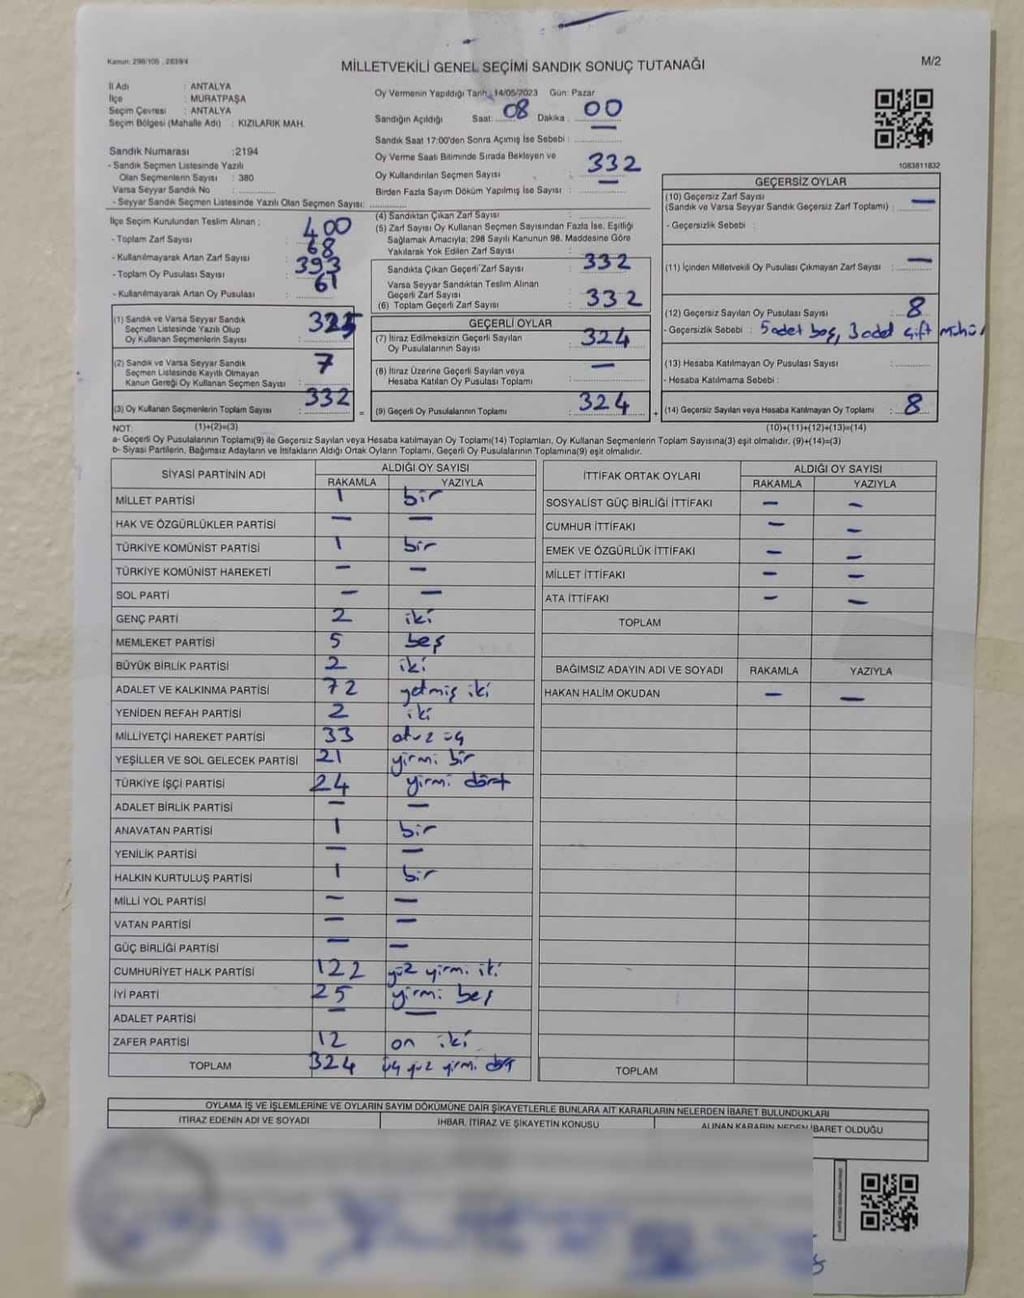 Kanun: 298/105 , 2839/4
MİLLETVEKİLİ GENEL SEÇİMİ SANDIK SONUÇ TUTANAĞI
M/2
İl Adı : ANTALYA
İlçe : MURATPAŞA
Seçim Çevresi : ANTALYA
Seçim Bölgesi (Mahalle Adı) : KIZILARIK MAH.
Sandık Numarası :2194
- Sandık Seçmen Listesinde Yazılı
Olan Seçmenlerin Sayısı : 380
Varsa Seyyar Sandık No :
- Seyyar Sandık Seçmen Listesinde Yazılı Olan Seçmen Sayısı:
Oy Vermenin Yapıldığı Tarih 14/05/2023 Gün: Pazar
Sandığın Açıldığı Saat: 08 Dakika : 00
Sandık Saat 17:00'den Sonra Açımış İse Sebebi :
Oy Verme Saati Bitiminde Sırada Bekleyen ve
Oy Kullandırılan Seçmen Sayısı : 332
Birden Fazla Sayım Döküm Yapılmış İse Sayısı : —
1083811832
İlçe Seçim Kurulundan Teslim Alınan ;
- Toplam Zarf Sayısı : 400
- Kullanılmayarak Artan Zarf Sayısı : 68
- Toplam Oy Pusulası Sayısı : 393
- Kullanılmayarak Artan Oy Pusulası : 61
(1) Sandık ve Varsa Seyyar Sandık
Seçmen Listesinde Yazılı Olup
Oy Kullanan Seçmenlerin Sayısı : 325
(2) Sandık ve Varsa Seyyar Sandık
Seçmen Listesinde Kayıtlı Olmayan
Kanun Gereği Oy Kullanan Seçmen Sayısı : 7
(3) Oy Kullanan Seçmenlerin Toplam Sayısı : 332
(4) Sandıktan Çıkan Zarf Sayısı :
(5) Zarf Sayısı Oy Kullanan Seçmen Sayısından Fazla İse, Eşitliği
Sağlamak Amacıyla; 298 Sayılı Kanunun 98. Maddesine Göre
Yakılarak Yok Edilen Zarf Sayısı :
Sandıkta Çıkan Geçerli Zarf Sayısı : 332
Varsa Seyyar Sandıktan Teslim Alınan
Geçerli Zarf Sayısı :
(6) Toplam Geçerli Zarf Sayısı : 332
GEÇERLİ OYLAR
(7) İtiraz Edilmeksizin Geçerli Sayılan
Oy Pusulalarının Sayısı : 324
(8) İtiraz Üzerine Geçerli Sayılan veya
Hesaba Katılan Oy Pusulası Toplamı : —
(9) Geçerli Oy Pusulalarının Toplamı : 324
GEÇERSİZ OYLAR
(10) Geçersiz Zarf Sayısı
(Sandık ve Varsa Seyyar Sandık Geçersiz Zarf Toplamı) : —
- Geçersizlik Sebebi :
(11) İçinden Milletvekili Oy Pusulası Çıkmayan Zarf Sayısı : —
(12) Geçersiz Sayılan Oy Pusulası Sayısı : 8
- Geçersizlik Sebebi : 5 adet boş, 3 adet çift mühür
(13) Hesaba Katılmayan Oy Pusulası Sayısı :
- Hesaba Katılmama Sebebi :
(14) Geçersiz Sayılan veya Hesaba Katılmayan Oy Toplamı : 8
NOT: (1)+(2)=(3) (10)+(11)+(12)+(13)=(14)
a- Geçerli Oy Pusulalarının Toplamı(9) ile Geçersiz Sayılan veya Hesaba katılmayan Oy Toplamı(14) Toplamları, Oy Kullanan Seçmenlerin Toplam Sayısına(3) eşit olmalıdır. (9)+(14)=(3)
b- Siyasi Partilerin, Bağımsız Adayların ve İttifakların Aldığı Ortak Oyların Toplamı, Geçerli Oy Pusulalarının Toplamına(9) eşit olmalıdır.
SİYASİ PARTİNİN ADI ALDIĞI OY SAYISI
RAKAMLA YAZIYLA
MİLLET PARTİSİ 1 bir
HAK VE ÖZGÜRLÜKLER PARTİSİ — —
TÜRKİYE KOMÜNİST PARTİSİ 1 bir
TÜRKİYE KOMÜNİST HAREKETİ — —
SOL PARTİ — —
GENÇ PARTİ 2 iki
MEMLEKET PARTİSİ 5 beş
BÜYÜK BİRLİK PARTİSİ 2 iki
ADALET VE KALKINMA PARTİSİ 72 yetmiş iki
YENİDEN REFAH PARTİSİ 2 iki
MİLLİYETÇİ HAREKET PARTİSİ 33 otuz üç
YEŞİLLER VE SOL GELECEK PARTİSİ 21 yirmi bir
TÜRKİYE İŞÇİ PARTİSİ 24 yirmi dört
ADALET BİRLİK PARTİSİ — —
ANAVATAN PARTİSİ 1 bir
YENİLİK PARTİSİ — —
HALKIN KURTULUŞ PARTİSİ 1 bir
MİLLİ YOL PARTİSİ — —
VATAN PARTİSİ — —
GÜÇ BİRLİĞİ PARTİSİ — —
CUMHURİYET HALK PARTİSİ 122 yüz yirmi iki
İYİ PARTİ 25 yirmi beş
ADALET PARTİSİ — —
ZAFER PARTİSİ 12 on iki
TOPLAM 324 üç yüz yirmi dört
İTTİFAK ORTAK OYLARI ALDIĞI OY SAYISI
RAKAMLA YAZIYLA
SOSYALİST GÜÇ BİRLİĞİ İTTİFAKI — —
CUMHUR İTTİFAKI — —
EMEK VE ÖZGÜRLÜK İTTİFAKI — —
MİLLET İTTİFAKI — —
ATA İTTİFAKI — —
TOPLAM
BAĞIMSIZ ADAYIN ADI VE SOYADI RAKAMLA YAZIYLA
HAKAN HALİM OKUDAN — —
TOPLAM
OYLAMA İŞ VE İŞLEMLERİNE VE OYLARIN SAYIM DÖKÜMÜNE DAİR ŞİKAYETLERLE BUNLARA AİT KARARLARIN NELERDEN İBARET BULUNDUKLARI
İTİRAZ EDENİN ADI VE SOYADI İHBAR, İTİRAZ VE ŞİKAYETİN KONUSU ALINAN KARARIN NEDEN İBARET OLDUĞU